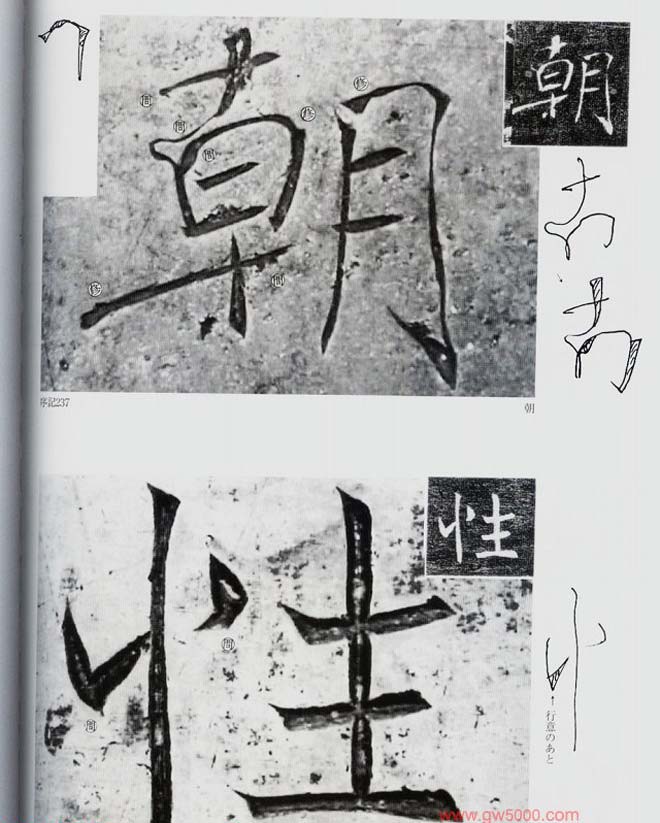 朝
朝
修
修
修
序記237
朝
性
性
↑行意のあと
www.gw5000.com